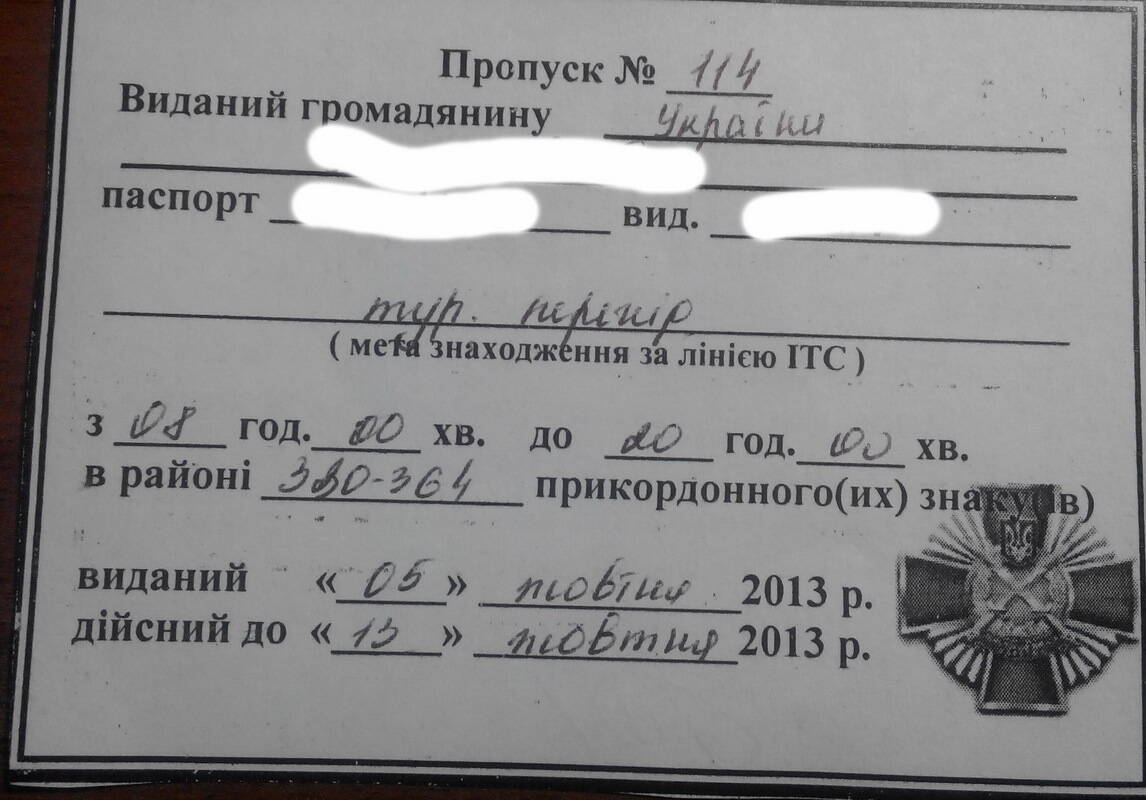 Пропуск № 114
Виданий громадянину України
паспорт вид.
тур. перехір
( мета знаходження за лінією ІТС )
з 08 год. 00 хв. до 20 год. 00 хв.
в районі 320-364 прикордонного(их) знаку(ів)
виданий « 05 » жовтня 2013 р.
дійсний до « 13 » жовтня 2013 р.